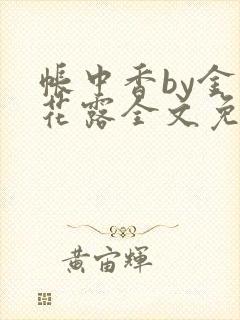 帐中香by金
花露全文免
黄宙辉